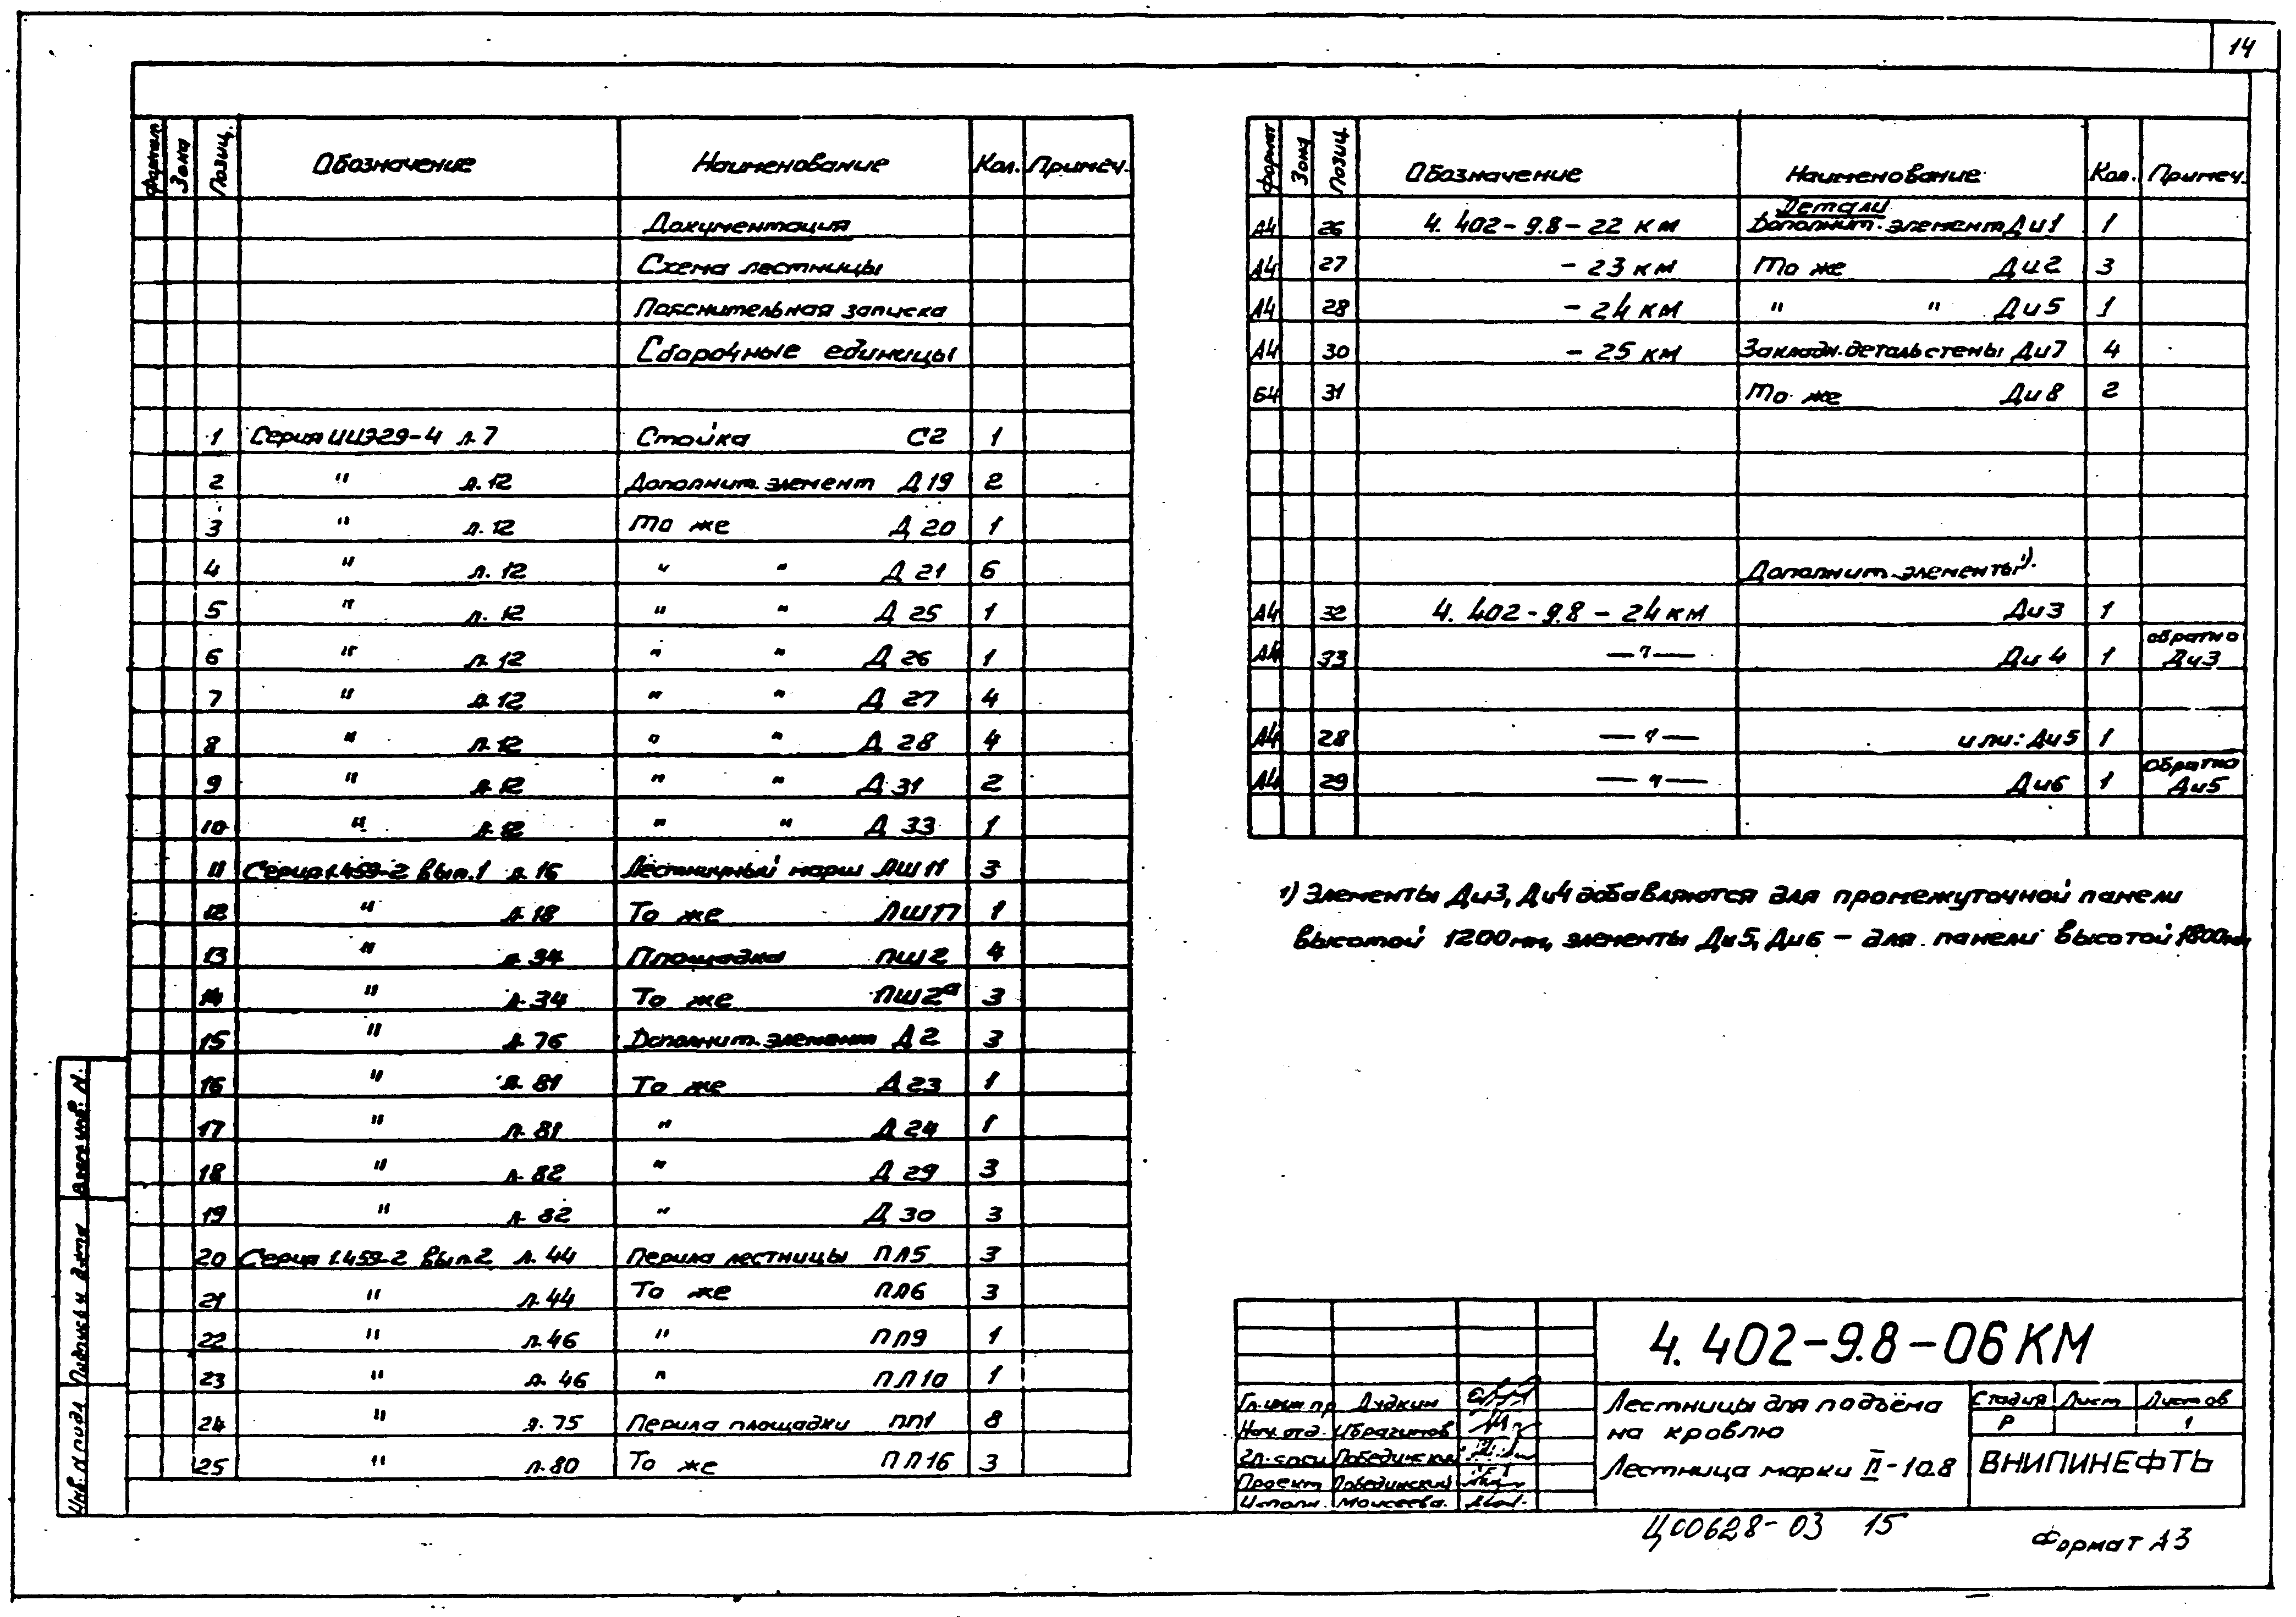 14
Формат Зона Позиц. Обозначение Наименование Кол. Примеч.
Документация
Схема лестницы
Пояснительная записка
Сборочные единицы
1 Серия ИИЭ29-4 л.7 Стойка С2 1
2 " л.12 Дополнит. элемент Д19 2
3 " л.12 То же Д20 1
4 " л.12 " " Д21 6
5 " л.12 " " Д25 1
6 " л.12 " " Д26 1
7 " л.12 " " Д27 4
8 " л.12 " " Д28 4
9 " л.12 " " Д31 2
10 " л.12 " " Д33 1
11 Серия 1.459-2 вып.1 л.16 Лестничный марш ЛШ11 3
12 " л.18 То же ЛШ17 1
13 " л.34 Площадка ПШ2 4
14 " л.34 То же ПШ2а 3
15 " л.76 Дополнит. элемент Д2 3
16 " л.81 То же Д23 1
17 " л.81 " Д24 1
18 " л.82 " Д29 3
19 " л.82 " Д30 3
20 Серия 1.459-2 вып.2 л.44 Перила лестницы ПЛ5 3
21 " л.44 То же ПЛ6 3
22 " л.46 " ПЛ9 1
23 " л.46 " ПЛ10 1
24 " л.75 Перила площадки ПП1 8
25 " л.80 То же ПП16 3
Формат Зона Позиц. Обозначение Наименование Кол. Примеч.
Детали
А4 26 4.402-9.8-22 КМ Дополнит. элемент Ди1 1
А4 27 -23 КМ То же Ди2 3
А4 28 -24 КМ " " Ди5 1
А4 30 -25 КМ Закладн. деталь стены Ди7 4
Б4 31 То же Ди8 2
Дополнит. элементы 1).
А4 32 4.402-9.8-24 КМ Ди3 1
А4 33 —"— Ди4 1 обратно Ди3
А4 28 —"— или: Ди5 1
А4 29 —"— Ди6 1 Обратно Ди5
1) Элементы Ди3, Ди4 добавляются для промежуточной панели
высотой 1200мм, элементы Ди5, Ди6 – для панели высотой 1800мм
4.402-9.8-06КМ
Гл.инж.пр. Дудкин
Нач.отд. Ибрагимов
Победински
Проект. Побединский
Исполн. Моисеева.
Лестницы для подъёма
на кровлю
Лестница марки II-10.8
Стадия Лист Листов
Р 1
ВНИПИНЕФТЬ
Ц00628-03 15
Формат А3
Взам инв. N.
Подпись и дата
Инв. N подл